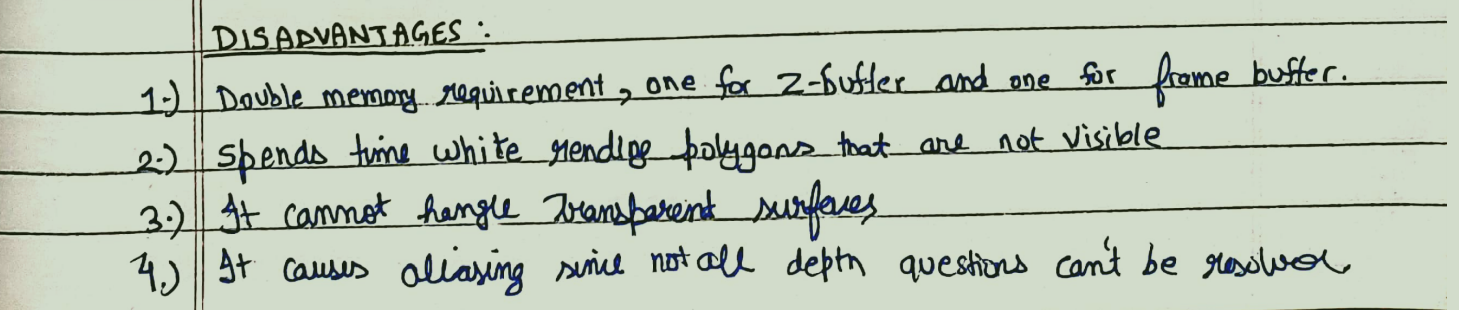 DISADVANTAGES :
1.) Double memory requirement, one for Z-buffer and one for frame buffer.
2.) Spends time white rendige polygons that are not visible
3.) It cannot hangle Transparent surfaces
4.) It causes aliasing since not all depth questions can't be resolved